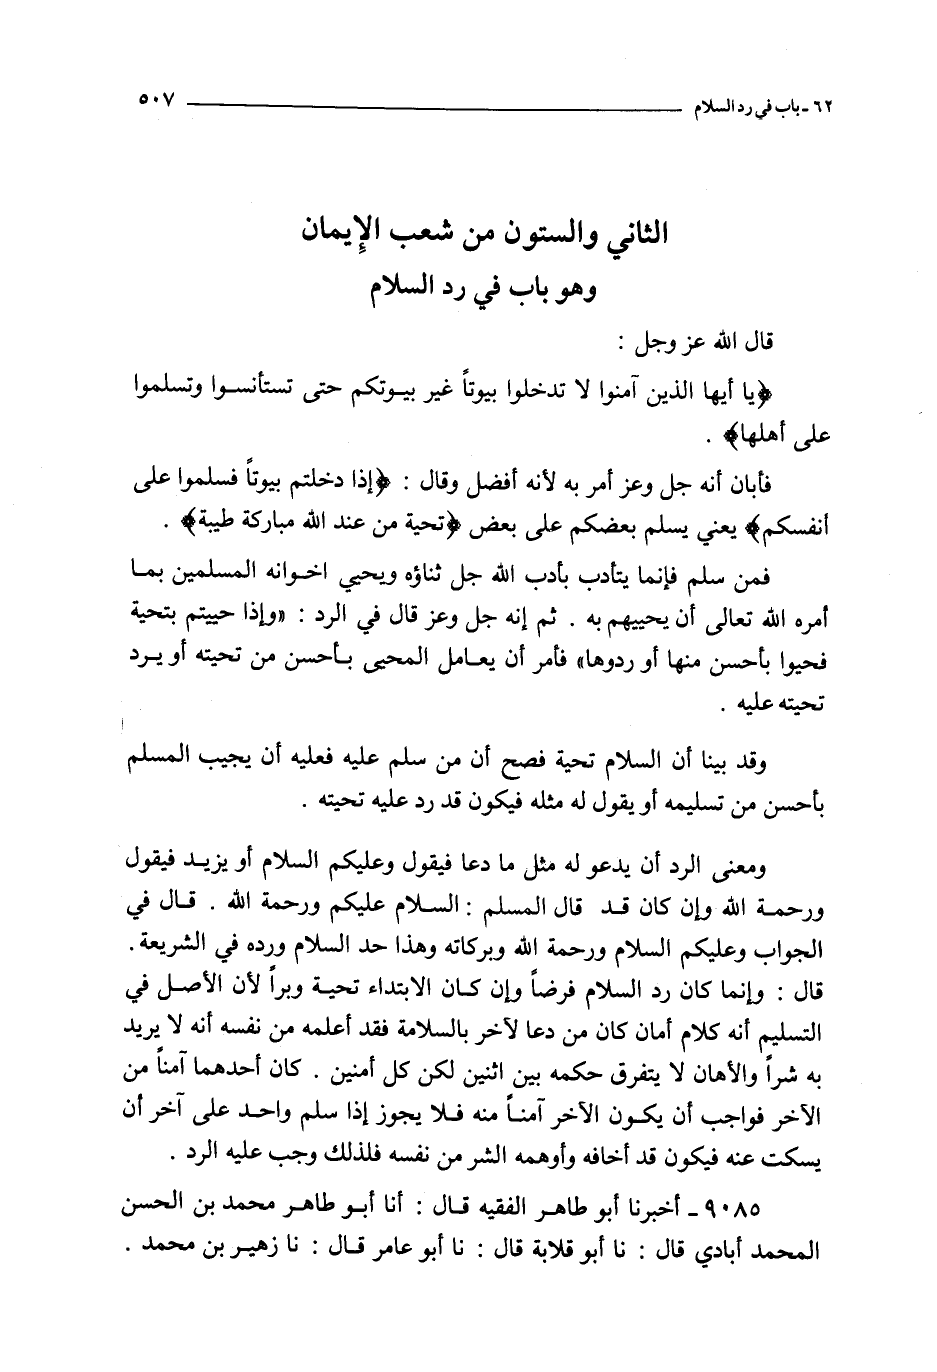 ٦٢ - باب في رد السلام ٥٠٧
الثاني والستون من شعب الإيمان
وهو باب في رد السلام
قال الله عز وجل :
﴿يا أيها الذين آمنوا لا تدخلوا بيوتاً غير بيوتكم حتى تستأنسوا وتسلموا
على أهلها﴾ .
فأبان أنه جل وعز أمر به لأنه أفضل وقال : ﴿إذا دخلتم بيوتاً فسلموا على
أنفسكم﴾ يعني يسلم بعضكم على بعض ﴿تحية من عند الله مباركة طيبة﴾ .
فمن سلم فإنما يتأدب بأدب الله جل ثناؤه ويحيي اخوانه المسلمين بما
أمره الله تعالى أن يحييهم به . ثم إنه جل وعز قال في الرد : «وإذا حييتم بتحية
فحيوا بأحسن منها أو ردوها» فأمر أن يعامل المحيى بأحسن من تحيته أو يرد
تحيته عليه .
وقد بينا أن السلام تحية فصح أن من سلم عليه فعليه أن يجيب المسلم
بأحسن من تسليمه أو يقول له مثله فيكون قد رد عليه تحيته .
ومعنى الرد أن يدعو له مثل ما دعا فيقول وعليكم السلام أو يزيد فيقول
ورحمة الله وإن كان قد قال المسلم : السلام عليكم ورحمة الله . قال في
الجواب وعليكم السلام ورحمة الله وبركاته وهذا حد السلام ورده في الشريعة .
قال : وإنما كان رد السلام فرضاً وإن كان الابتداء تحية وبراً لأن الأصل في
التسليم أنه كلام أمان كان من دعا لآخر بالسلامة فقد أعلمه من نفسه أنه لا يريد
به شراً والأهان لا يتفرق حكمه بين اثنين لكن كل أمنين . كان أحدهما آمناً من
الآخر فواجب أن يكون الآخر آمناً منه فلا يجوز إذا سلم واحد على آخر أن
يسكت عنه فيكون قد أخافه وأوهمه الشر من نفسه فلذلك وجب عليه الرد .
٩٠٨٥ - أخبرنا أبو طاهر الفقيه قال : أنا أبو طاهر محمد بن الحسن
المحمد أبادي قال : نا أبو قلابة قال : نا أبو عامر قال : نا زهير بن محمد .